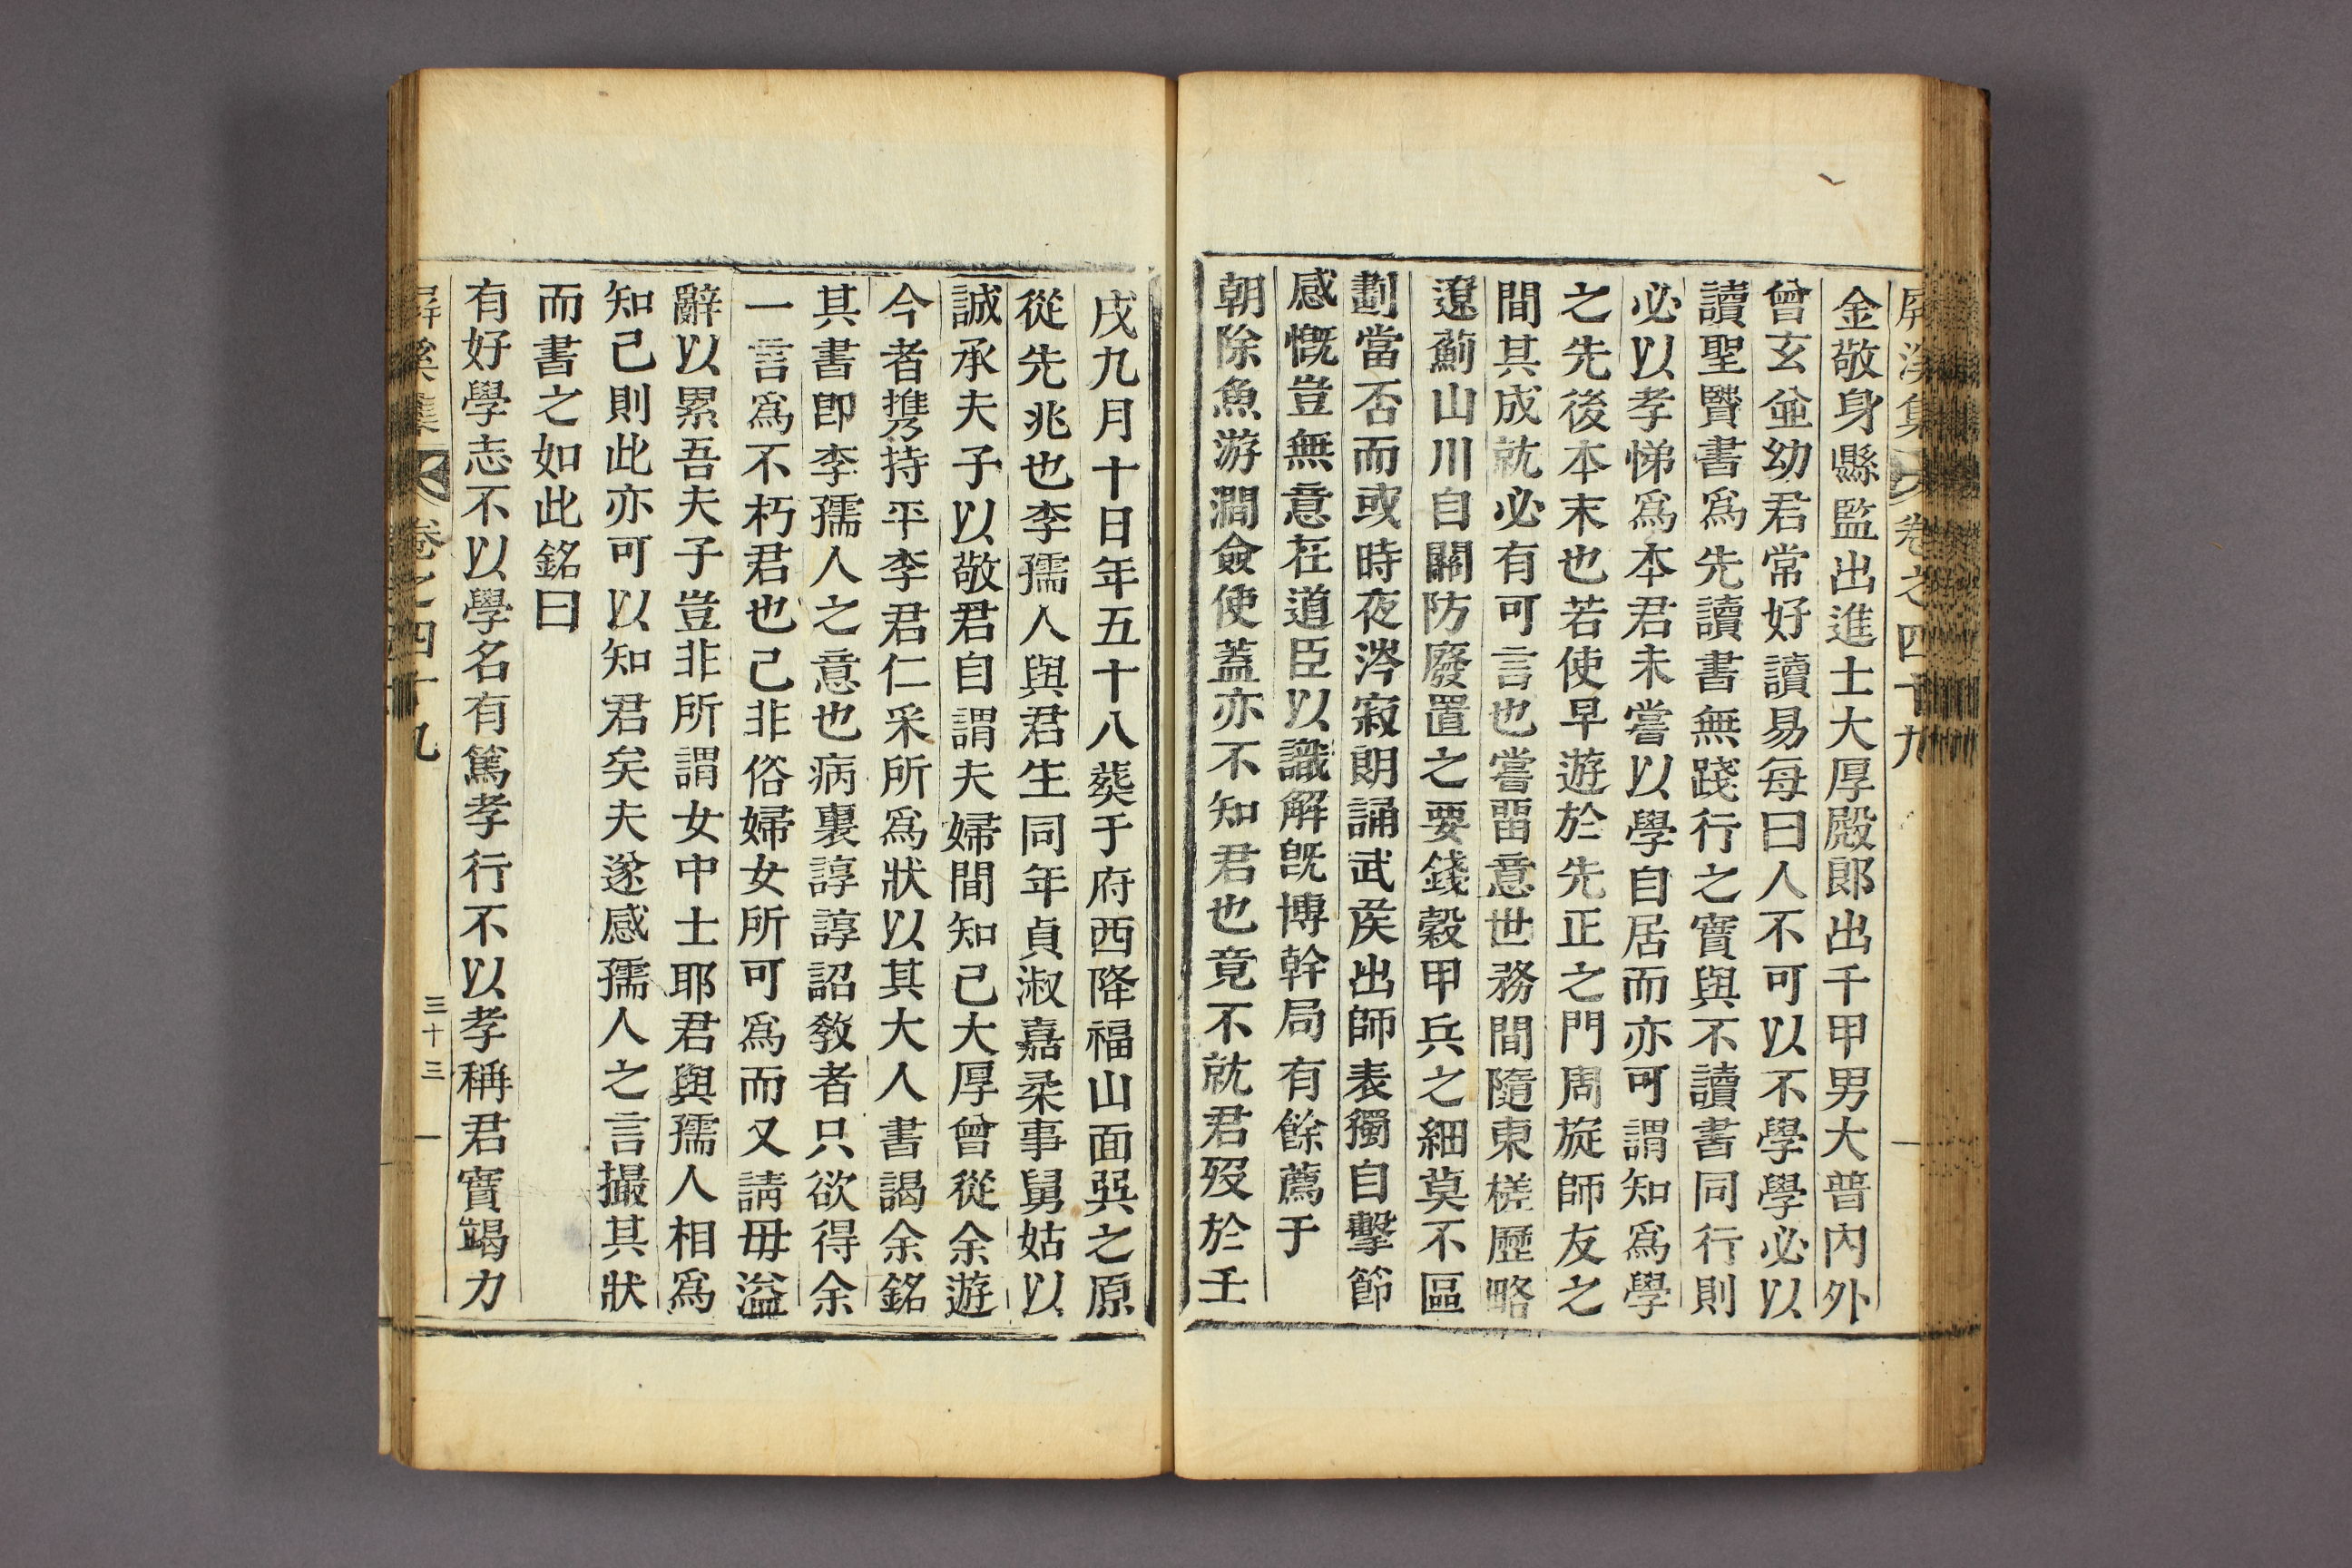 屛溪集 卷之四十九
金敬身縣監出進士大厚殿郞出千甲男大普內外
曾玄並幼君常好讀易每曰人不可以不學學必以
讀聖賢書爲先讀書無踐行之實與不讀書同行則
必以孝悌爲本君未嘗以學自居而亦可謂知爲學
之先後本末也若使早遊於先正之門周旋師友之
間其成就必有可言也嘗留意世務間隨東槎歷略
遼薊山川自關防廢置之要錢穀甲兵之細莫不區
劃當否而或時夜涔寂朗誦武矦出師表獨自擊節
感慨豈無意在道臣以識解旣博幹局有餘薦于
朝除魚游澗僉使蓋亦不知君也竟不就君歿於壬
戌九月十日年五十八葬于府西降福山面巽之原
從先兆也李孺人與君生同年貞淑嘉柔事舅姑以
誠承夫子以敬君自謂夫婦間知己大厚曾從余遊
今者携持平李君仁采所爲狀以其大人書謁余銘
其書卽李孺人之意也病裏諄諄詔敎者只欲得余
一言爲不朽君也己非俗婦女所可爲而又請毋溢
辭以累吾夫子豈非所謂女中士耶君與孺人相爲
知己則此亦可以知君矣夫遂感孺人之言撮其狀
而書之如此銘曰
有好學志不以學名有篤孝行不以孝稱君實竭力
屛溪集 卷之四十九 三十三